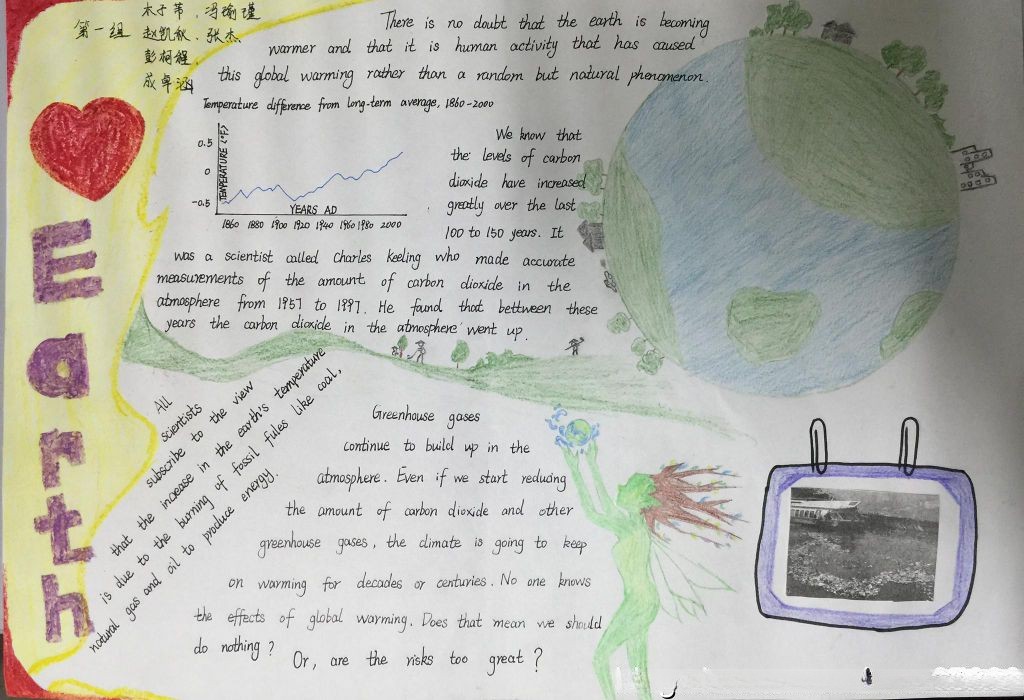 第一组
木子芾、冯瑜瑾
赵凯秋、张杰
彭柯程、
成卓涵
Earth
There is no doubt that the earth is becoming
warmer and that it is human activity that has caused
this global warming rather than a random but natural phenomenon.
Temperature difference from long-term average, 1860-2000
TEMPERATURE (°F)
0.5
0
-0.5
YEARS AD
1860 1880 1900 1920 1940 1960 1980 2000
We know that
the levels of carbon
dioxide have increased
greatly over the last
100 to 150 years. It
was a scientist called Charles keeling who made accurate
measurements of the amount of carbon dioxide in the
atmosphere from 1957 to 1997. He found that bettween these
years the carbon dioxide in the atmosphere went up.
All
scientists
subscribe to the view
that the increase in the earth's temperature
is due to the burning of fossil fules like coal,
natural gas and oil to produce energy.
Greenhouse gases
continue to build up in the
atmosphere. Even if we start reducing
the amount of carbon dioxide and other
greenhouse gases, the climate is going to keep
on warming for decades or centuries. No one knows
the effects of global warming. Does that mean we should
do nothing?
Or, are the risks too great?